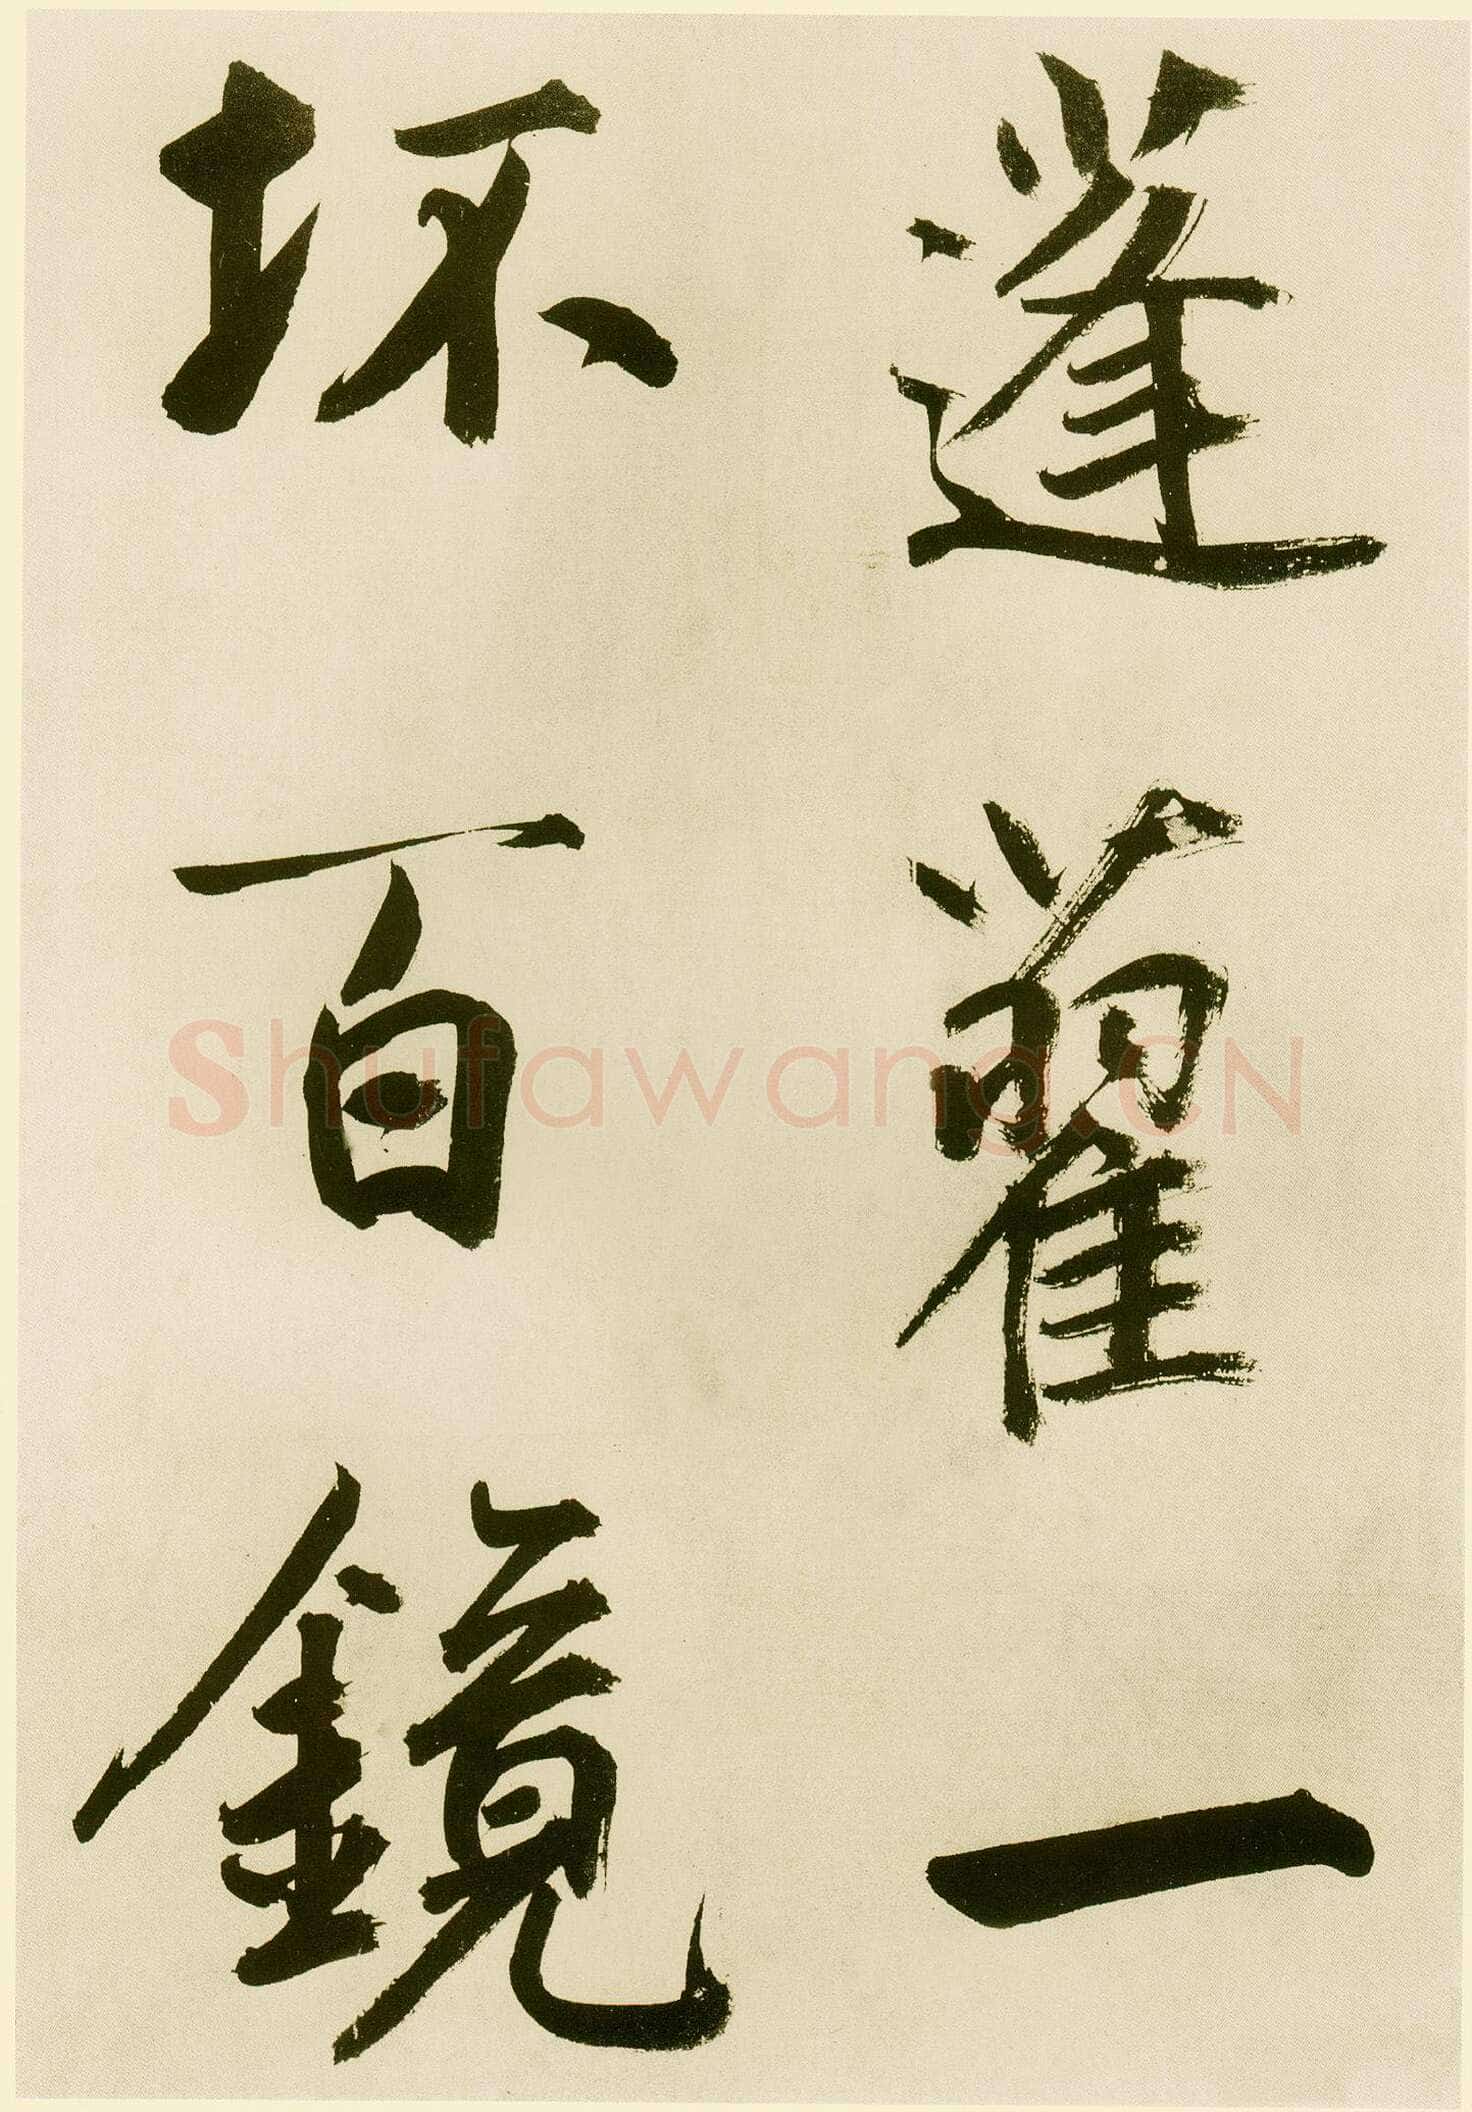 蓬藋一
坏百鏡
Shufawang.CN